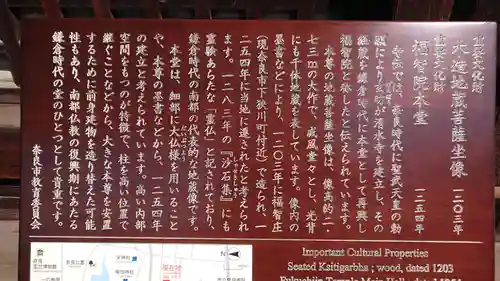 重要文化財
木造地蔵菩薩坐像 一二〇三年
重要文化財
福智院本堂 一二五四年
寺伝では、奈良時代に聖武天皇の勅
願により玄昉が清水寺を建立し、その
継蔵を鎌倉時代に本堂として再興し
福智院と称したと伝えられています。
本尊の地蔵菩薩坐像は、像高約二・
七三mの大作で、威風堂々とし、光背
にも千体地蔵を表しています。像内の
墨書などにより、一二〇三年に福智庄
(現奈良市下狭川町付近)で造られ、一
二五四年に当地に遷されたと考えられ
ます。一二八三年の『沙石集』にも
霊験あらたな「霊仏」と記されており、
鎌倉時代の南都の代表的な地蔵像です。
本堂は、細部に大仏様を用いること
や、本尊の墨書などから、一二五四年
の建立と考えられています。高い内部
空間をもつのが特徴で、柱を高い位置で
継ぐことなどから、大きな本尊を安置
するために前身建物を造り替えた可能
性もあり、南都仏教の復興期にあたる
鎌倉時代の堂のひとつとして貴重です。
奈良市教育委員会
Important Cultural Properties
Seated Ksitigarbha ; wood, dated 1203